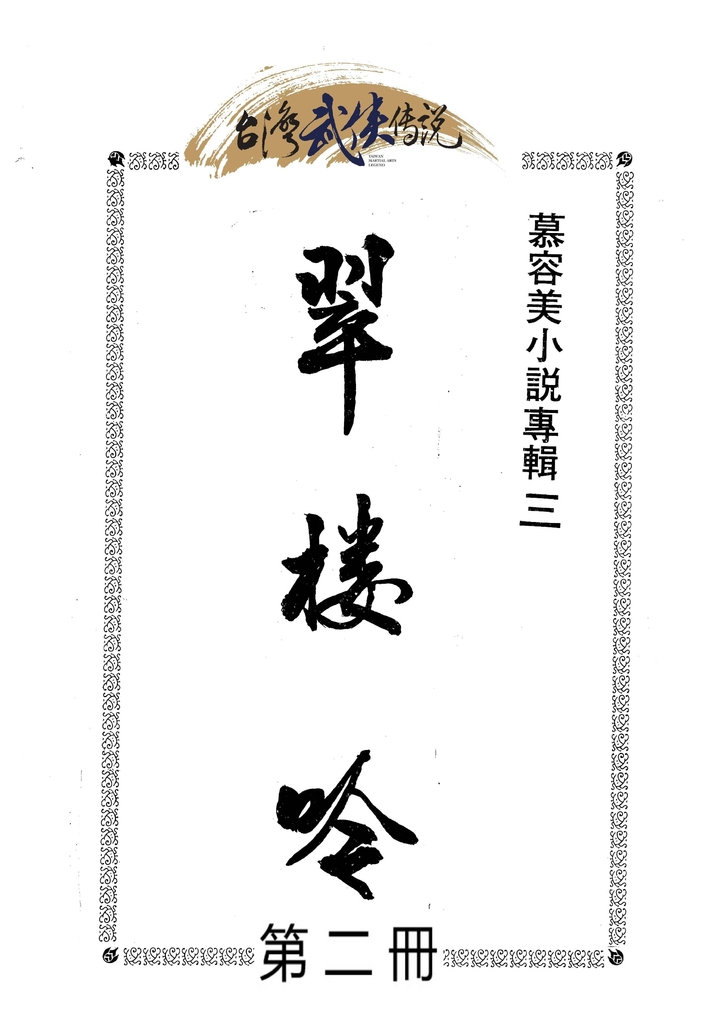 台灣武俠傳説
TAIWAN
MARTIAL ARTS
LEGEND
慕容美小説專輯 三
翠楼吟
第二冊